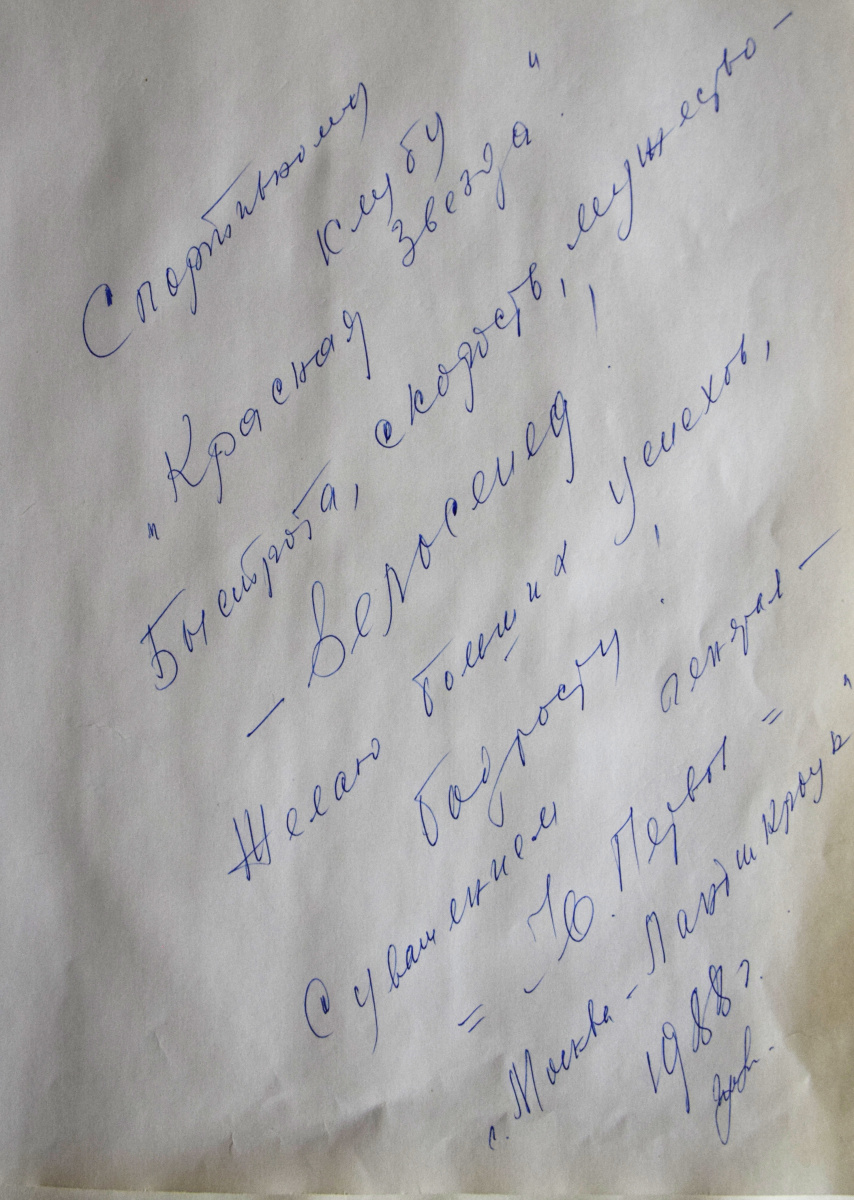 Спортивному
клубу
„Красная Звезда"
Быстрота, скорость, мужество –
– Велосипед!
Желаю больших успехов,
бодрости!
С уважением генерал –
= Ю. Первы =
„Москва – Ландшкроун"
1988 г.